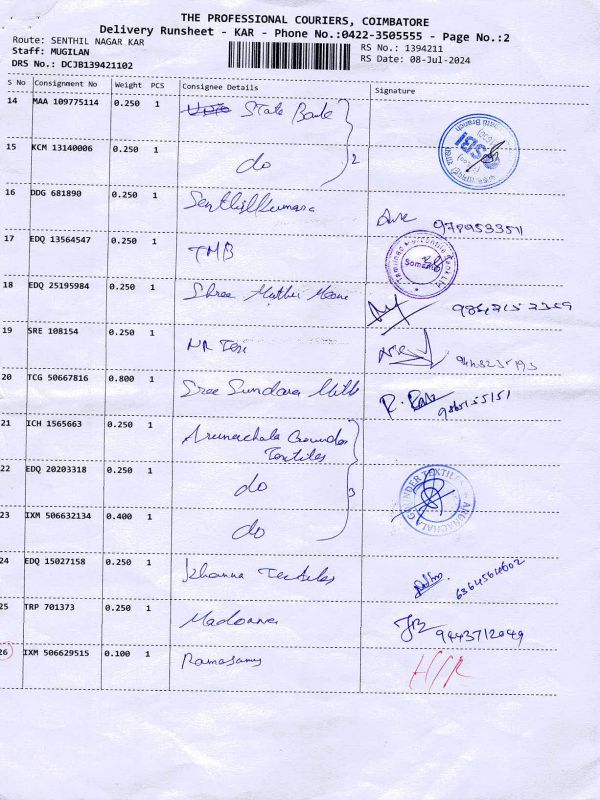 THE PROFESSIONAL COURIERS, COIMBATORE
Delivery Runsheet - KAR - Phone No.:0422-3505555 - Page No.:2
Route: SENTHIL NAGAR KAR
RS No.: 1394211
Staff: MUGILAN
RS Date: 08-Jul-2024
DRS No.: DCJB139421102
S No Consignment No Weight PCS Consignee Details Signature
14 MAA 109775114 0.250 1 State Bank
15 KCM 13140006 0.250 1 do
2
SBI
16 DDG 681890 0.250 1 Senthilkumara
17 EDQ 13564547 0.250 1 TMB
18 EDQ 25195984 0.250 1 Shree
19 SRE 108154 0.250 1
20 TCG 50667816 0.800 1 Sree Sundara Mills R.
21 ICH 1565663 0.250 1 Arunachala Gounder
Textiles
22 EDQ 20203318 0.250 1 do
3
GOUNDER TEXTILES ARUNACHALA
23 IXM 506632134 0.400 1 do
24 EDQ 15027158 0.250 1 Khanna Textiles 6364564602
25 TRP 701373 0.250 1 Madonna 9443712049
26 IXM 506629515 0.100 1 Ramasamy